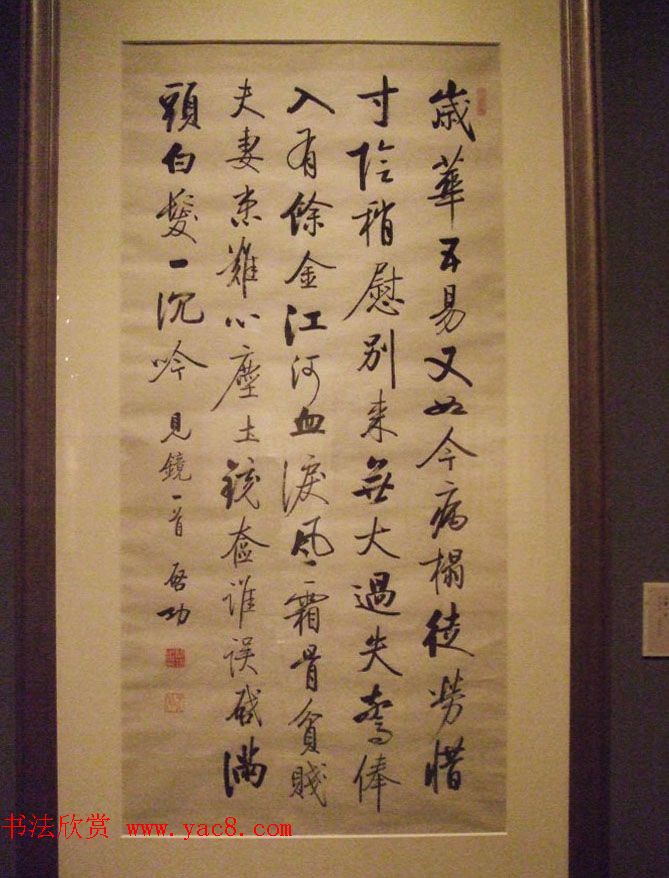 歲華五易又如今病榻徒勞惜
寸陰稍慰別来無大過失驚俸
入有餘金江河血淚風霜骨貧賤
夫妻患難心塵土鏡奩誰誤啟滿
頭白髮一沉吟 見鏡一首 啟功
书法欣赏 www.yac8.com